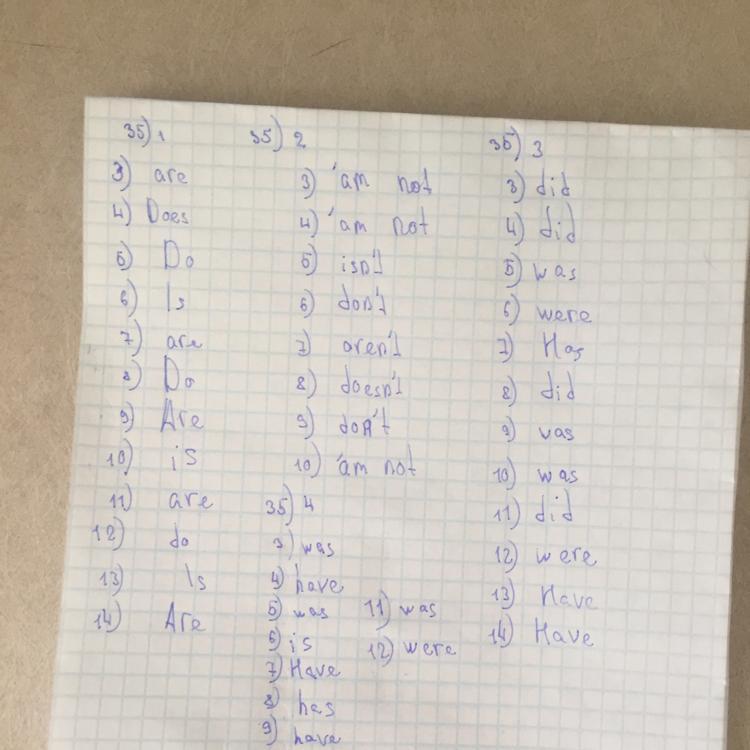 35) 1
3) are
4) Does
5) Do
6) Is
7) are
8) Do
9) Are
10) is
11) are
12) do
13) Is
14) Are
35) 2
3) 'am not
4) 'am not
5) isn't
6) don't
7) aren't
8) doesn't
9) don't
10) 'am not
35) 4
3) was
4) have
5) was
6) is
7) Have
8) has
9) have
11) was
12) were
35) 3
3) did
4) did
5) was
6) were
7) Has
8) did
9) was
10) was
11) did
12) were
13) Have
14) Have